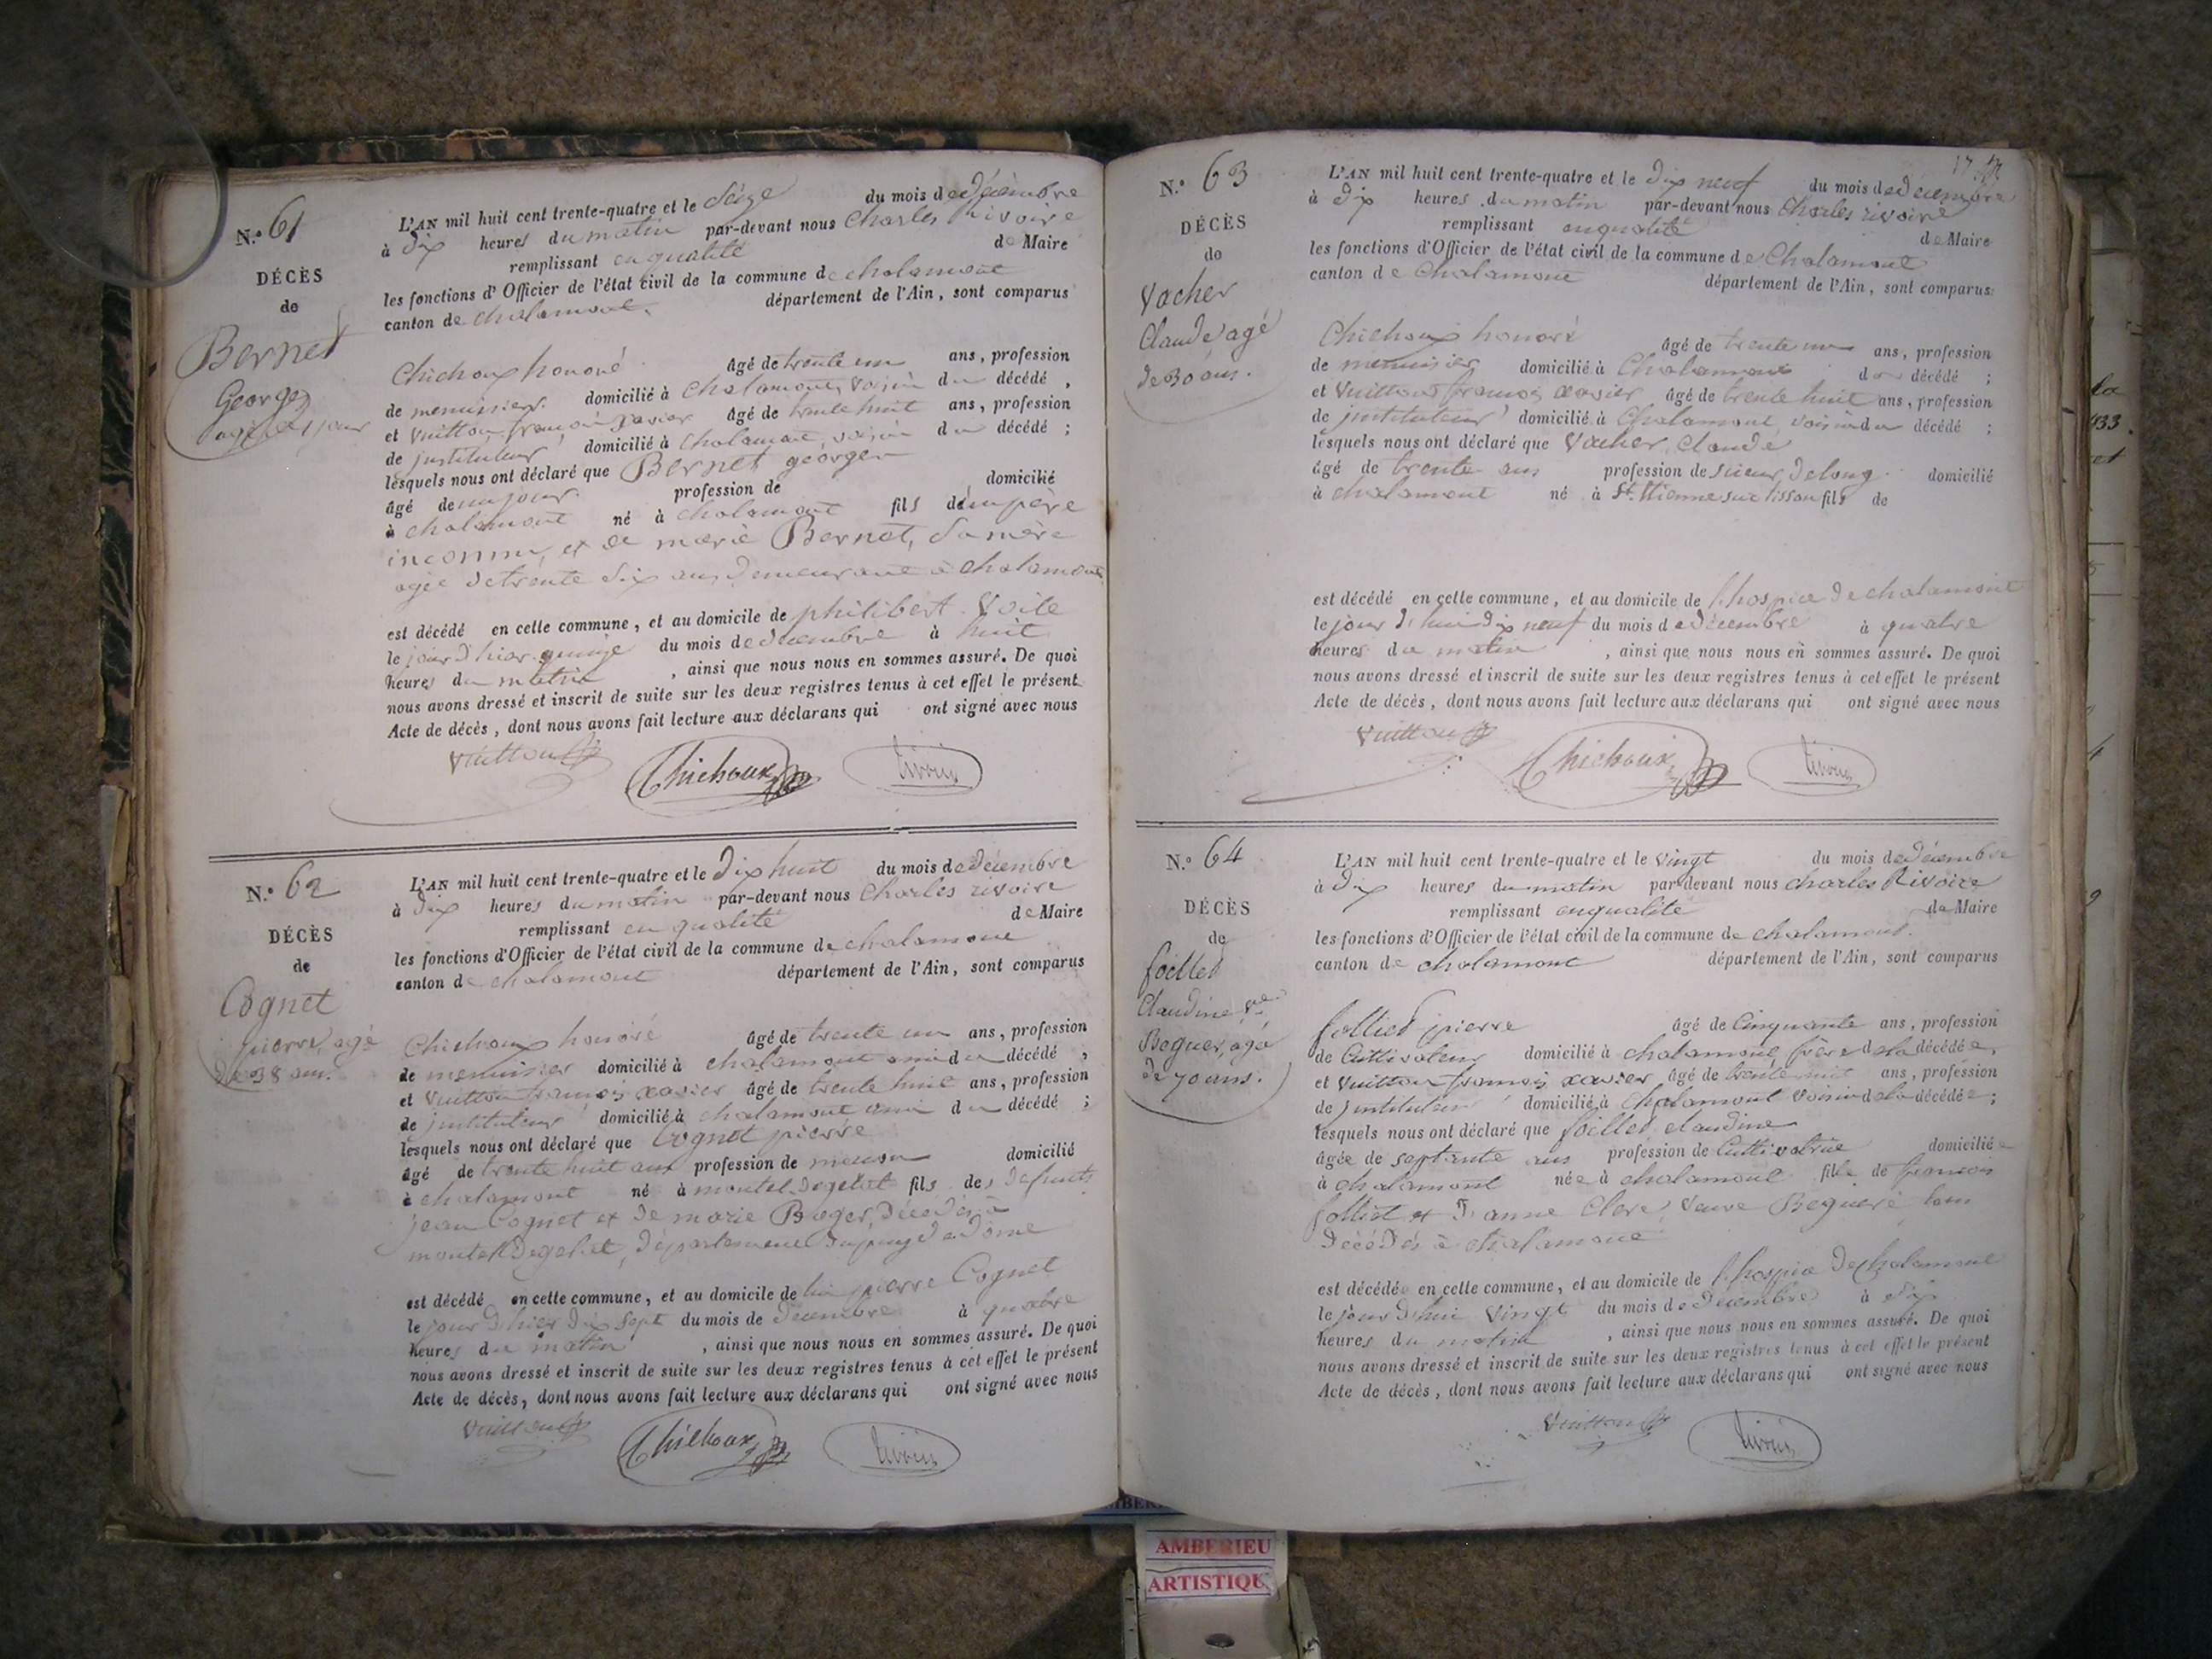 N.° 61
DÉCÈS
de
Bernet
George
agé de 1 jour
L'AN mil huit cent trente-quatre et le Seize du mois de décembre
à dix heures du matin par-devant nous Charles Rivoire
remplissant en qualité de Maire
les fonctions d'Officier de l'état civil de la commune de chalamont
canton de chalamont. département de l'Ain, sont comparus
Chichoux honoré âgé de trente un ans, profession
de menuisier domicilié à Chalamont, voisin du décédé,
et Vuitton françois xavier âgé de trente huit ans, profession
de instituteur domicilié à Chalamont, voisin du décédé ;
lesquels nous ont déclaré que Bernet george
âgé de un jour profession de domicilié
à chalamont né à chalamont fils d'un père
inconnu, et de marie Bernet, Sa mère
agée de trente Six ans demeurant à chalamont
est décédé en cette commune, et au domicile de philibert Voite
le jour d'hier quinze du mois de decembre à huit
heures du matin, ainsi que nous nous en sommes assuré. De quoi
nous avons dressé et inscrit de suite sur les deux registres tenus à cet effet le présent
Acte de décès, dont nous avons fait lecture aux déclarans qui ont signé avec nous
Vuitton Chichoux Rivoire
N.° 62
DÉCÈS
de
Cognet
pierre, agé
de 38 ans.
L'AN mil huit cent trente-quatre et le dix huit du mois de décembre
à dix heures du matin par-devant nous Charles rivoire
remplissant en qualité de Maire
les fonctions d'Officier de l'état civil de la commune de chalamont
canton de chalamont département de l'Ain, sont comparus
Chichoux honoré âgé de trente un ans, profession
de menuisier domicilié à chalamont ami du décédé,
et Vuitton françois xavier âgé de trente huit ans, profession
de instituteur domicilié à chalamont ami du décédé ;
lesquels nous ont déclaré que Cognet pierre
âgé de trente huit ans profession de macon domicilié
à chalamont né à montel degelat fils des defunts
jean Cognet et de marie Boger, décédés à
montel Degelat, département du puy de dome
est décédé en cette commune, et au domicile de lui pierre Cognet
le jour d'hier dix sept du mois de décembre à quatre
heures du matin, ainsi que nous nous en sommes assuré. De quoi
nous avons dressé et inscrit de suite sur les deux registres tenus à cet effet le présent
Acte de décès, dont nous avons fait lecture aux déclarans qui ont signé avec nous
Vuitton Chichoux Rivoire
N.° 63
DÉCÈS
de
Vacher
Claude agé
de 30 ans.
17
L'AN mil huit cent trente-quatre et le dix neuf du mois de décembre
à dix heures du matin par-devant nous Charles rivoire
remplissant en qualité de Maire
les fonctions d'Officier de l'état civil de la commune de Chalamont
canton de Chalamont département de l'Ain, sont comparus
Chichoux honoré âgé de trente un ans, profession
de menuisier domicilié à Chalamont du décédé ;
et Vuitton françois xavier âgé de trente huit ans, profession
de instituteur domicilié à Chalamont, voisin du décédé ;
lesquels nous ont déclaré que Vacher, Claude
âgé de trente ans profession de Sieur de long domicilié
à chalamont né à St. Etienne sur fils de
est décédé en cette commune, et au domicile de l'hospice de chalamont
le jour d'hui dix neuf du mois de décembre à quatre
heures du matin, ainsi que nous nous en sommes assuré. De quoi
nous avons dressé et inscrit de suite sur les deux registres tenus à cet effet le présent
Acte de décès, dont nous avons fait lecture aux déclarans qui ont signé avec nous
Vuitton Chichoux Rivoire
N.° 64
DÉCÈS
de
folliet
Claudine Ve
Beguer, agé
de 70 ans.
L'AN mil huit cent trente-quatre et le vingt du mois de décembre
à dix heures du matin par-devant nous charles Rivoire
remplissant en qualité de Maire
les fonctions d'Officier de l'état civil de la commune de chalamont.
canton de chalamont département de l'Ain, sont comparus
follied pierre âgé de Cinquante ans, profession
de Cultivateur domicilié à chalamont, frère de la décédée,
et Vuitton françois xavier âgé de trente huit ans, profession
de instituteur domicilié à Chalamont voisin de la décédée ;
lesquels nous ont déclaré que follied claudine
âgée de septante ans profession de Cultivatrice domiciliée
à chalamont née à chalamont fille de françois
folliet et d'anne Clere, Veuve Begueré tous
Décédés à chalamont
est décédée en cette commune, et au domicile de l'hospice de chalamont
le jour d'hui vingt du mois de décembre à dix
heures du matin, ainsi que nous nous en sommes assuré. De quoi
nous avons dressé et inscrit de suite sur les deux registres tenus à cet effet le présent
Acte de décès, dont nous avons fait lecture aux déclarans qui ont signé avec nous
Vuitton Rivoire
AMBERIEU
ARTISTIQUE